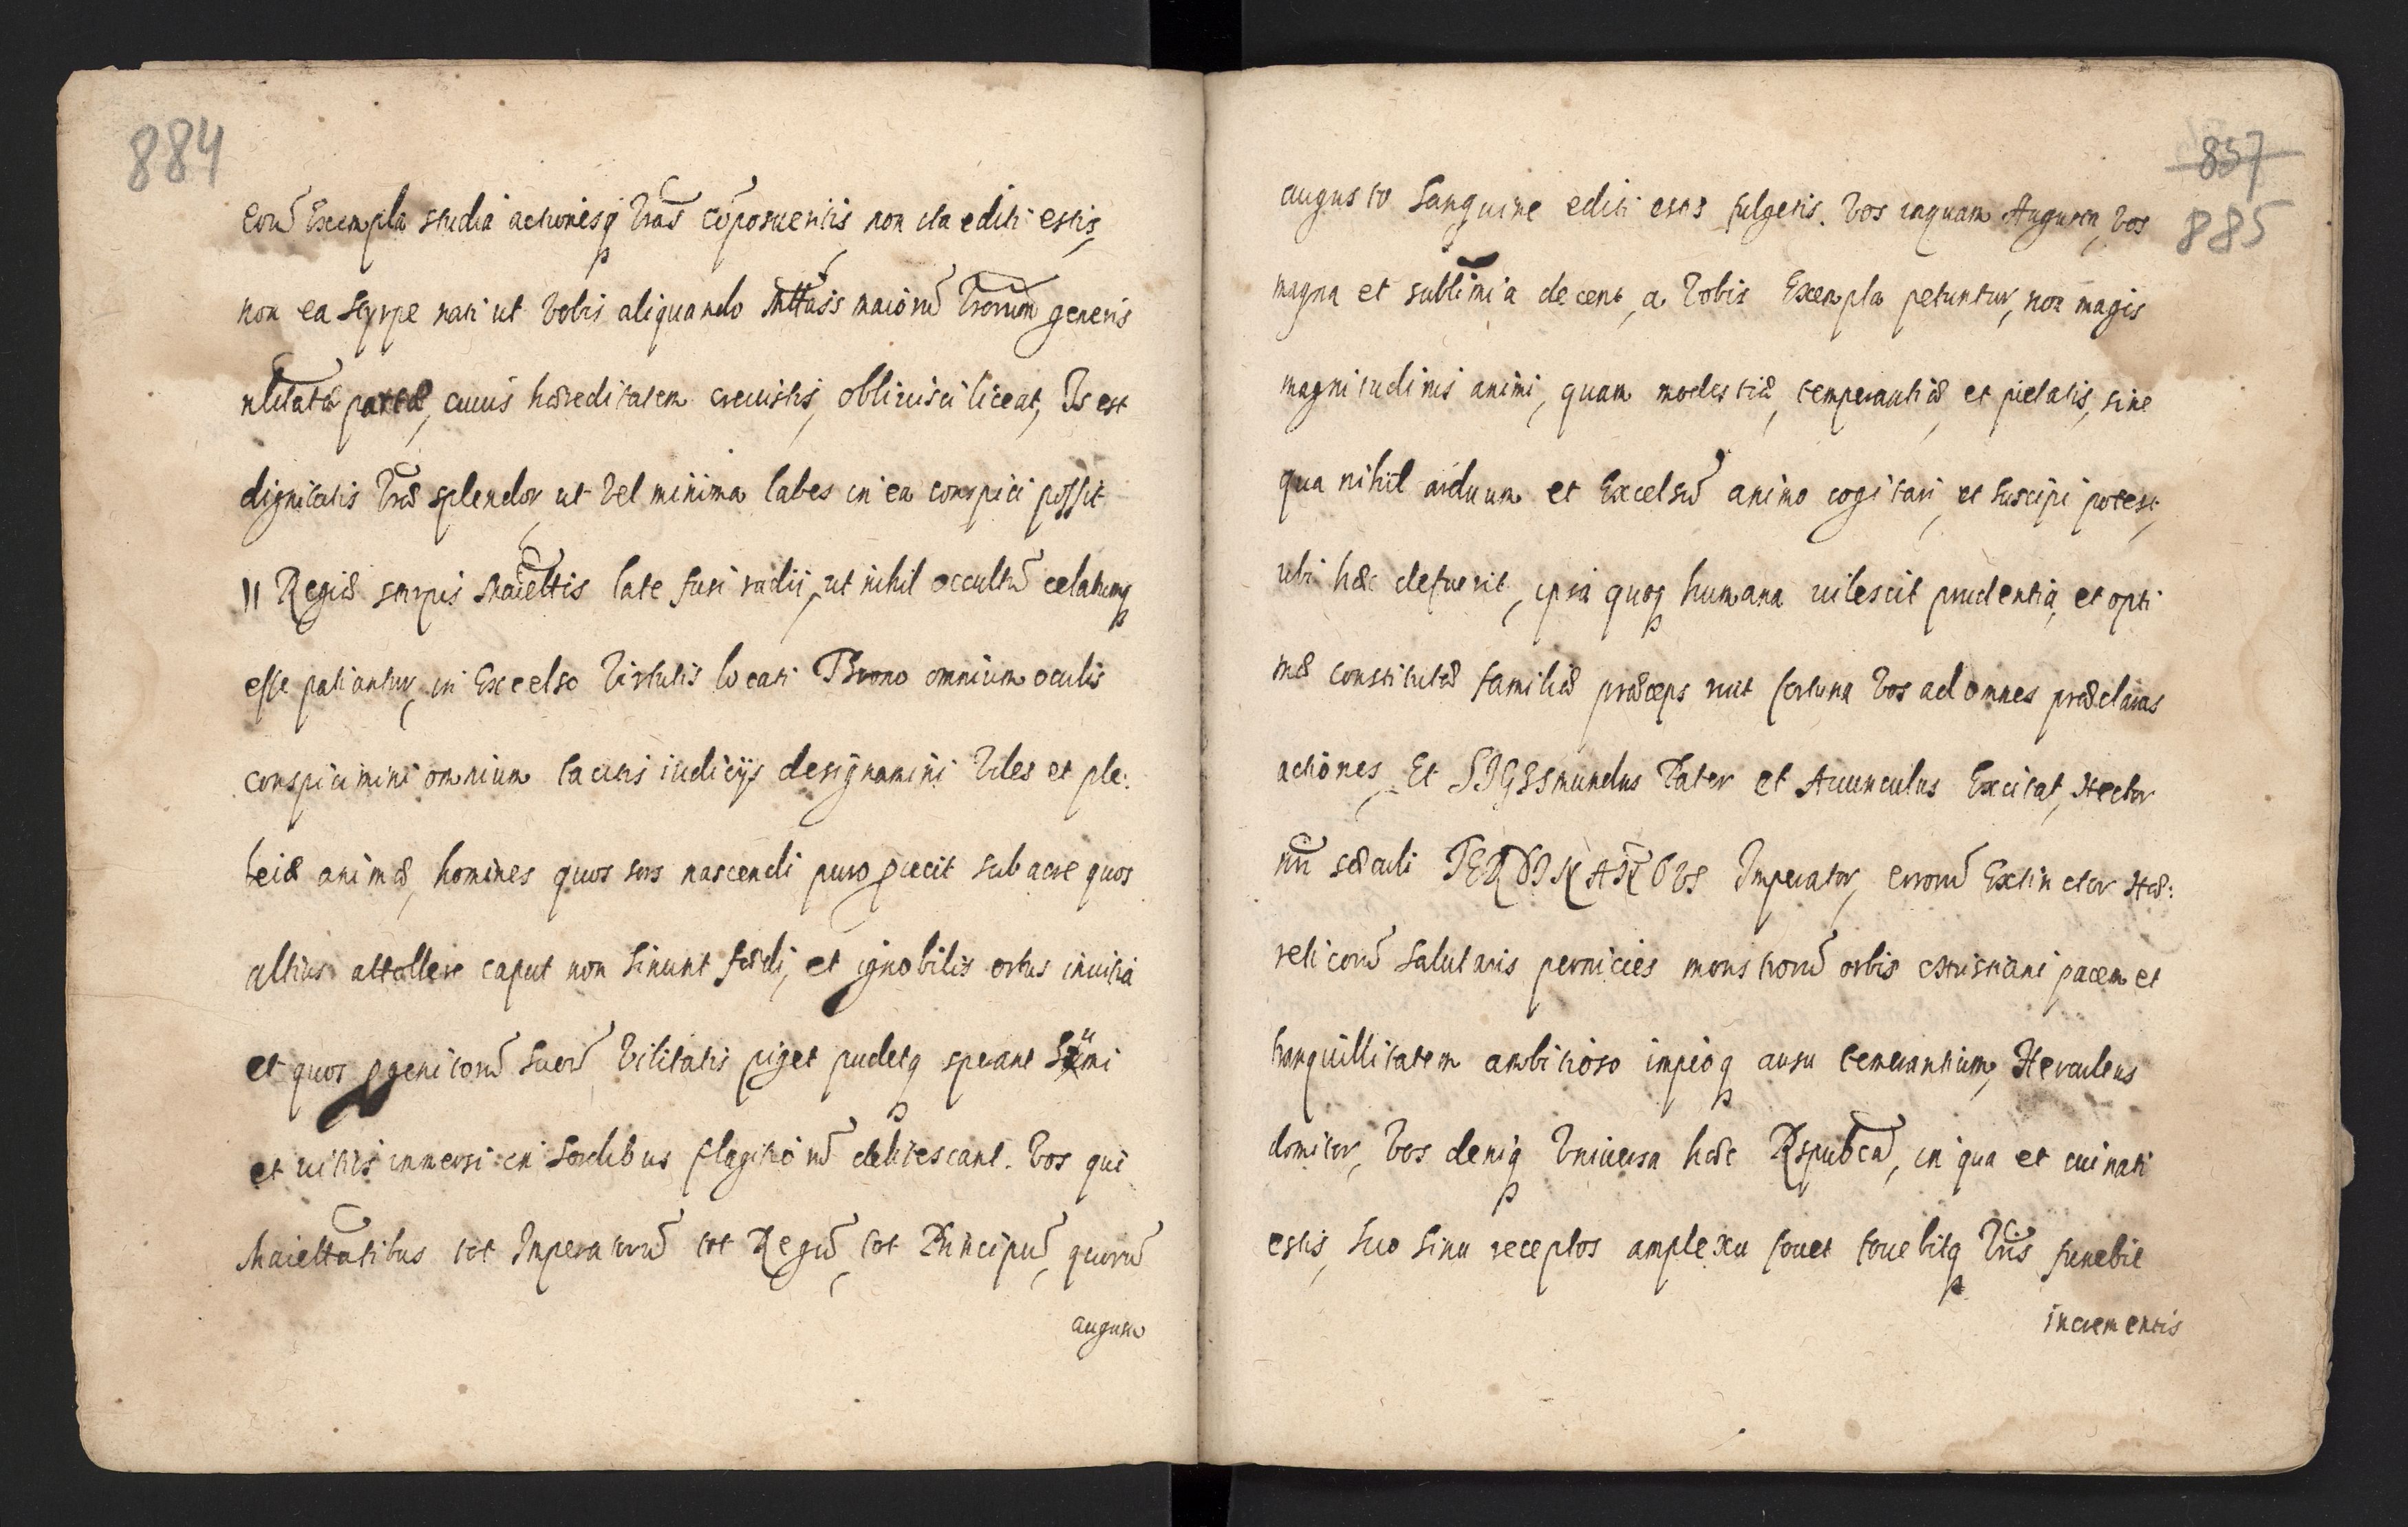 884
eorũ Exempla studia actionesq; Vrãs cõposueritis non ita editi estis,
non ea styrpe nati ut Vobis aliquando Mttais maiorũ Vrorum generis
nlitatẽ partæ, cuius hæreditatem creuistis, obliuisci liceat, Is est
dignitatis Vræ splendor, ut Vel minima labes in ea conspici possit
II Regiæ stirpis Maiettis late fusi radii, ut nihil occultũ celatumq;
esse patiantur, in Excelso Virtutis locati Throno omnium oculis
conspicimini omnium tacitis iudicijs designamini Viles et ple:
beiæ animæ, homines quos sors nascendi puro piecit sub aere quos
altius attollere caput non sinunt fœdi, et ignobilis ortus initia
et quos pgenitorũ Suorũ Vilitatis piget pudetq; sperant
et uitiis immersi in Sordibus flagitiorũ delitescant. Vos qui
Maiettatibus tot Imperatorũ tot Regũ, tot Principũ, quorũ
augusto
857
885
augusto Sanguine editi estis fulgetis. Vos inquam Augusta, Vos
magna et sublimia decent, a Vobis Exempla petuntur, non magis
magnitudinis animi, quam modestiæ, temperantiæ et pietatis, sine
qua nihil arduum et Excelsũ animo cogitari, et Suscipi potest,
ubi hæc defuerit, ipsa quoq; humana uilescit prudentia, et opti
mæ constitutæ familiæ præceps ruit fortuna Vos ad omnes præclaras
actiones, Et SIGISmundus Pater et Auunculus Excitat, Hector
nri sæculi FERDINANDVS Imperator, errorũ Extinctor Hæ:
reticorũ Salutaris pernicies monstrorũ orbis christiani pacem et
tranquillitatem ambitioso impioq; ausu temerantium, Herculeus
domitor, Vos deniq; Vniuersa hæc Rspubca, in qua et cui nati
estis, Suo Sinu receptos amplexu fouet fouebitq; Vris funebie
incrementis